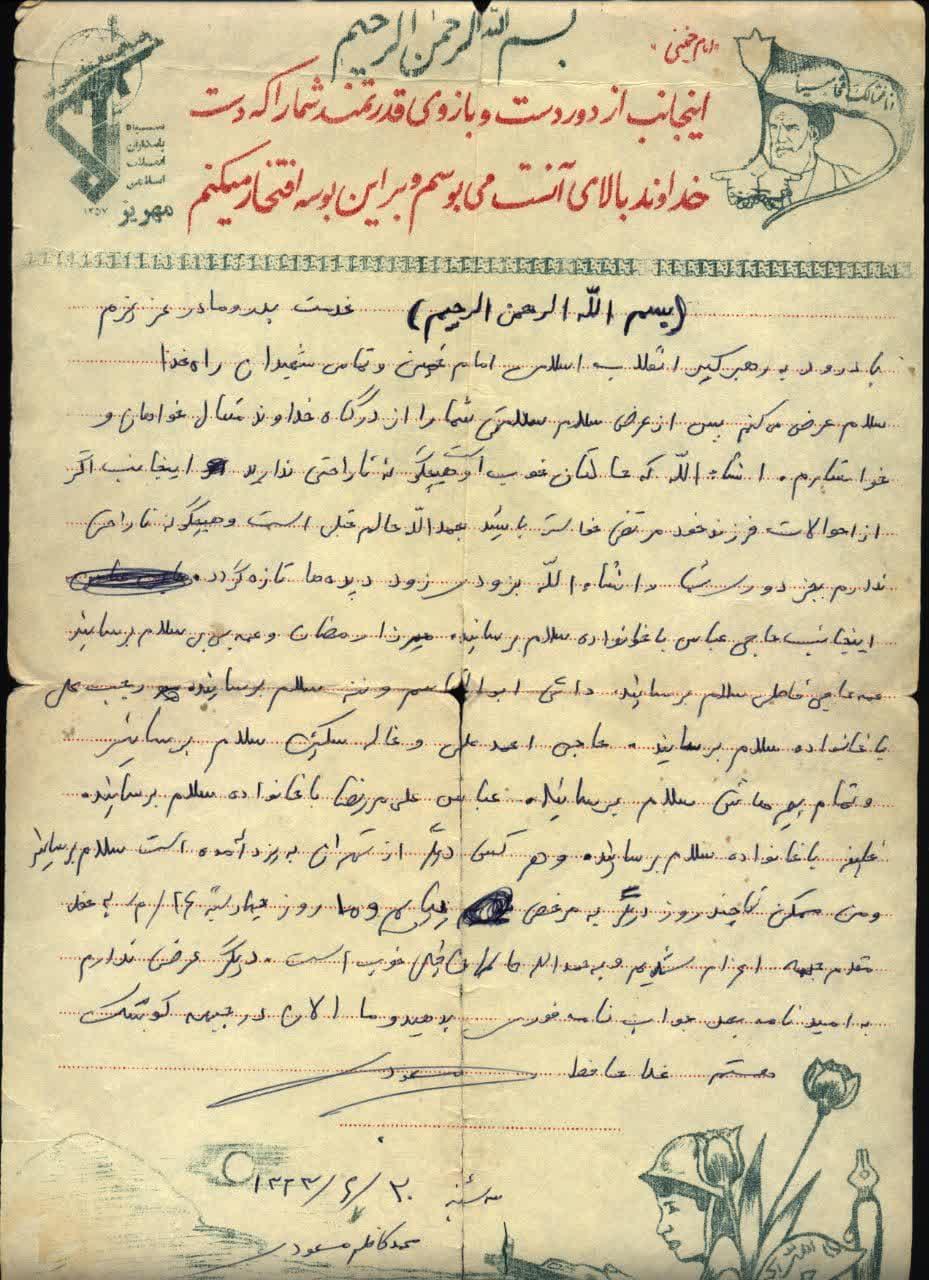 بسم الله الرحمن الرحیم
«امام خمینی»
اینجانب از دور دست و بازوی قدرتمند شما را که دست
خداوند بالای آنست می بوسم و بر این بوسه افتخار میکنم
سپاه
پاسداران
انقلاب
اسلامی
۱۳۵۷
مهریز
(بسم الله الرحمن الرحیم) خدمت پدر و مادر عزیزم
با درود به رهبر کبیر انقلاب اسلامی امام خمینی و تمامی شهیدان راه خدا
سلام عرض می کنم پس از عرض سلام سلامتی شما را از درگاه خداوند متعال خواهان و
خواستارم. انشاء الله که حالتان خوب است و هیچگونه ناراحتی ندارید اینجانب اگر
از احوالات فرزند خود مرتضی خواسته باشید بحمد الله حالم خوب است و هیچگونه ناراحتی
ندارم بجز دوری شما انشاء الله بزودی زود دیدها تازه گردد.
اینجانب حاجی عباس با خانواده سلام برسانید. میرزا رمضان و عمه بی بی سلام برسانید
عمه حاجی فاطمی سلام برسانید. داشی ابوالقاسم و ننه سلام برسانید رجب علی
با خانواده سلام برسانید. حاجی احمد علی و خاله سکینه سلام برسانید
و تمام سلام برسانید. عباس علی میرزا با خانواده سلام برسانید.
خلیفه با خانواده سلام برسانید و هر کسی دیگر از تهران به یزد آمده است سلام برسانید
و من ممکن تا چند روز دیگر به مرخصی بیایم و ما روز چهارشنبه به خط
مقدم جبهه اعزام شدیم و بحمد الله خوب است. دیگر عرضی ندارم
به امید نامه بعد جواب نامه فوری بدهید و ما الان در جبهه کوشک
هستم خدا حافظ مسعودی
سه شنبه ۱۳۶۳/۶/۲۰
محمد کاظم مسعودی